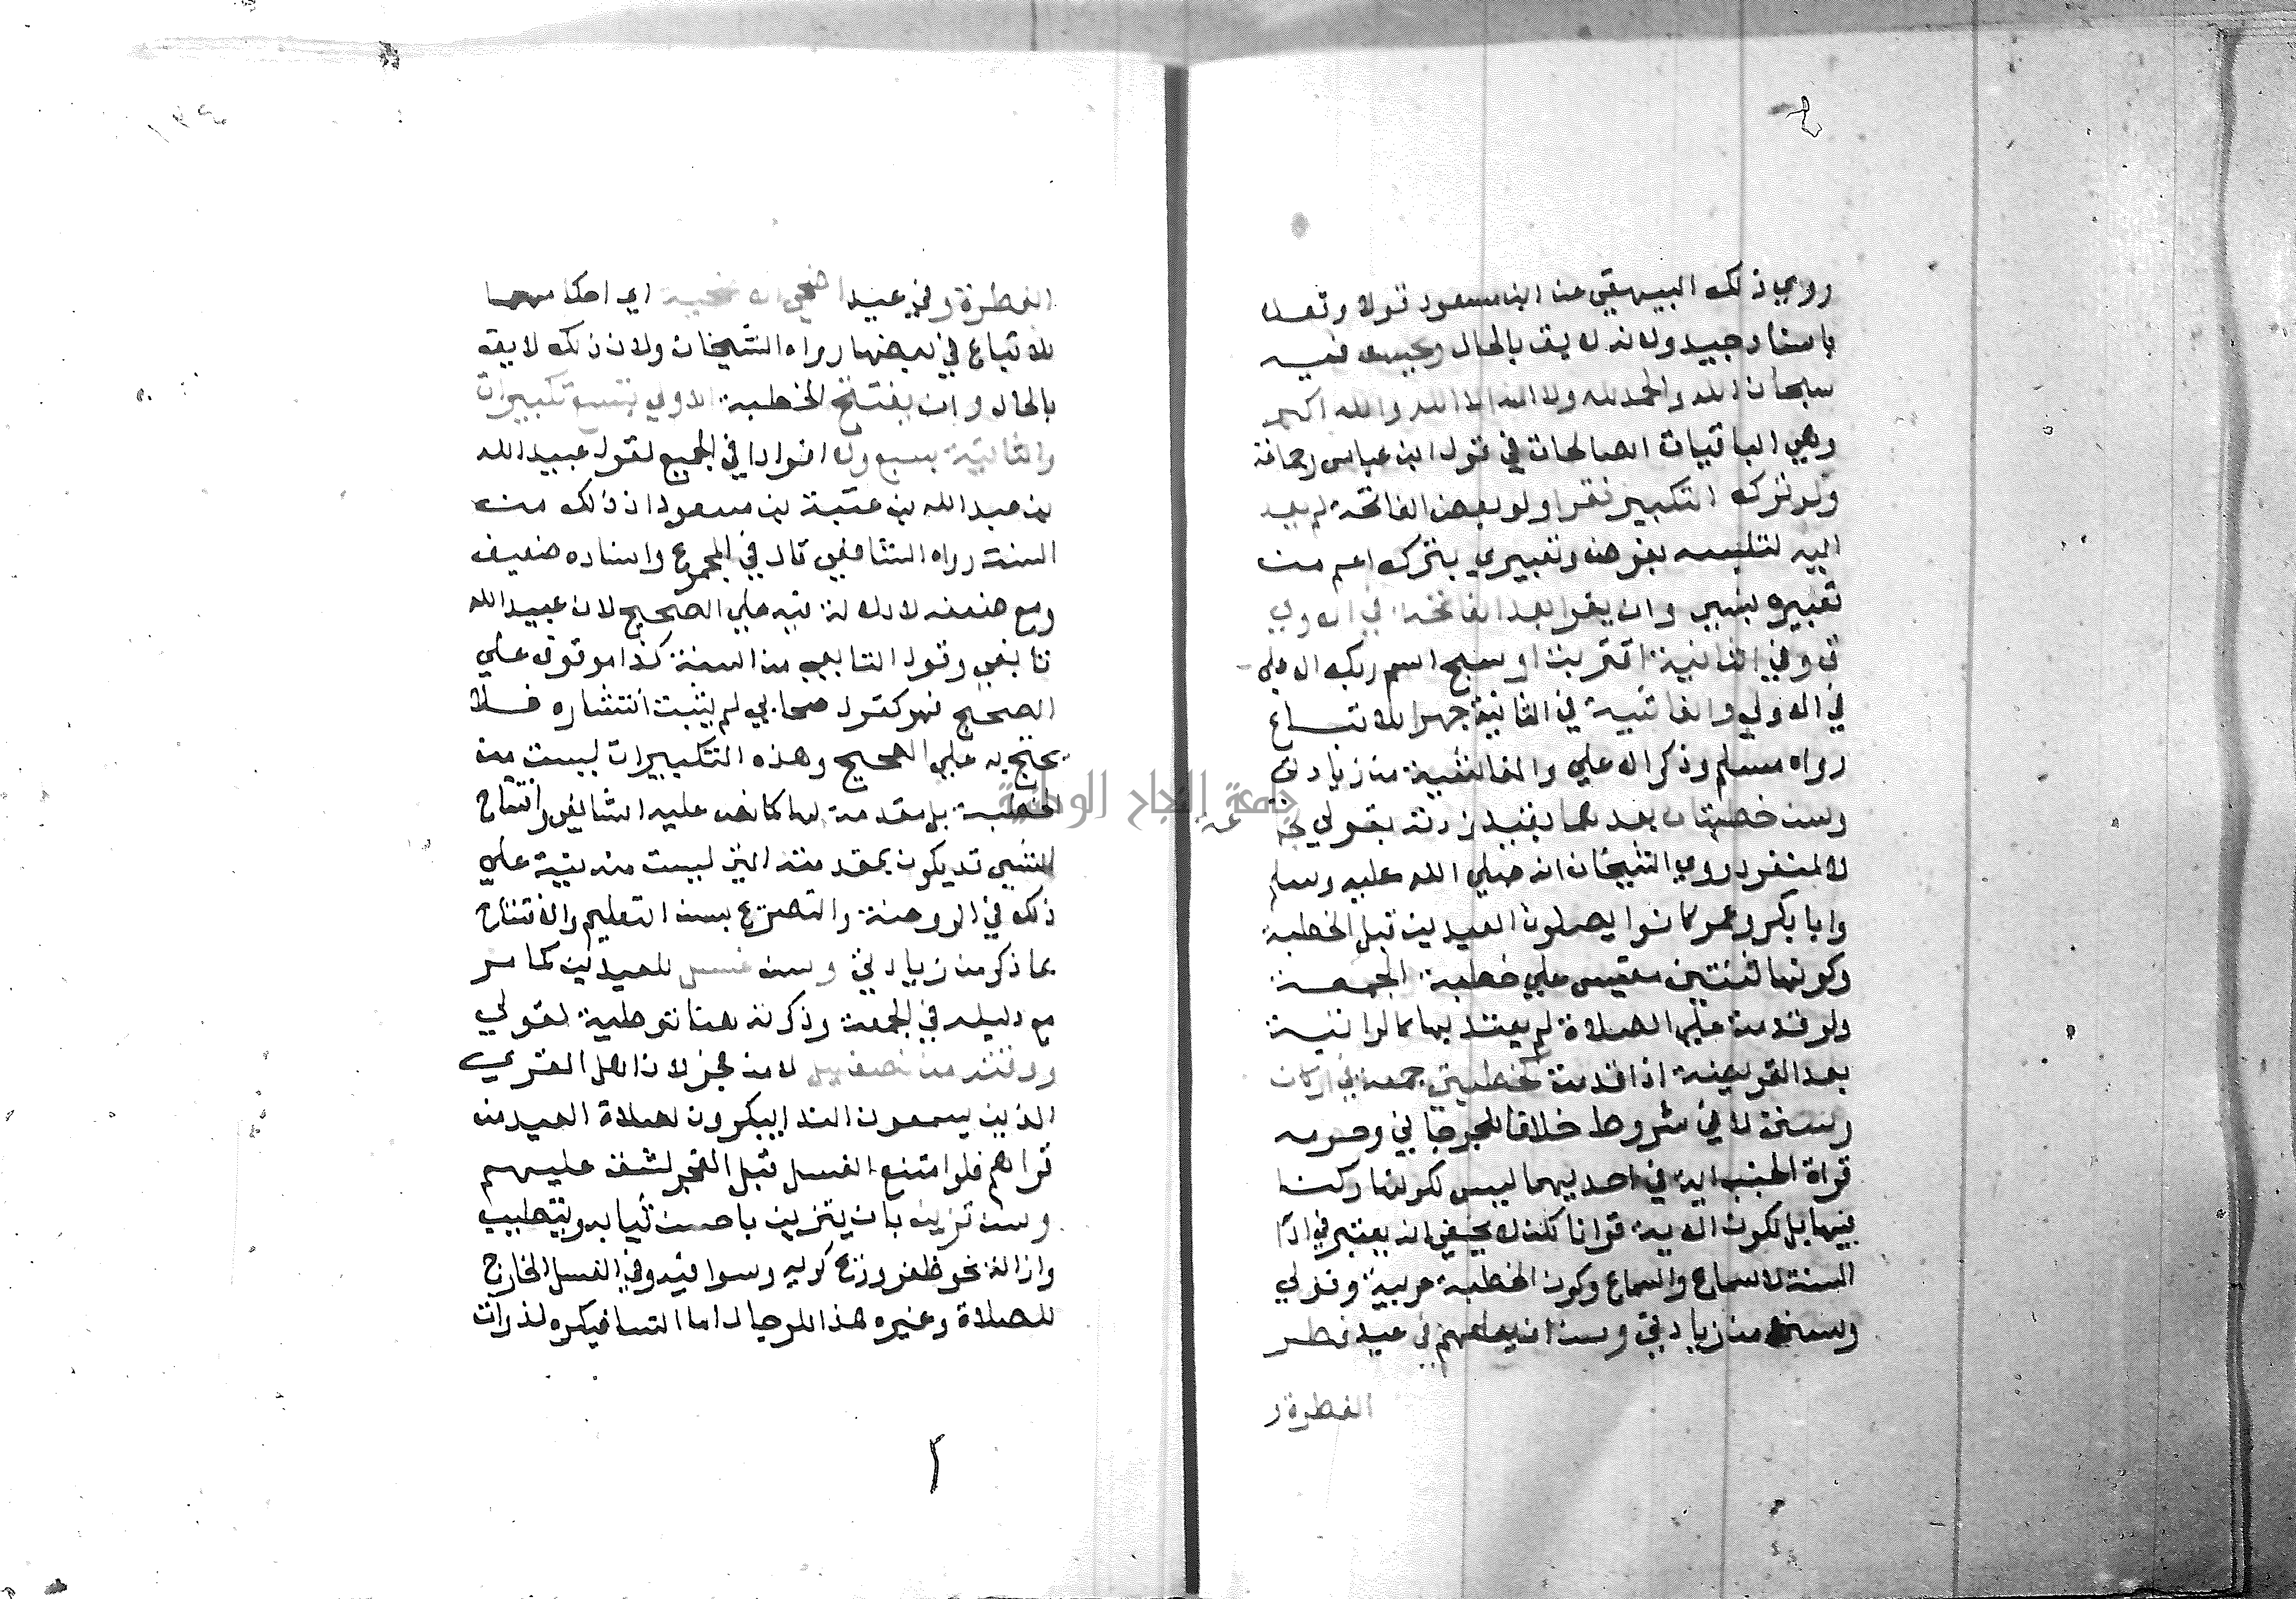 روي ذلك البيهقي عن ابن مسعود قولا وفعلا
باسناد جيد ولانه لايق بالحال ويجيى فيه
سبحان الله والحمد لله ولا اله الا الله والله اكبر
وهي الباقيات الصالحات في قول ابن عباس وجماعة
ولو ترك التكبير فقرا ولو بعض الفاتحة لم يعد
اليه لتلبسه بفرض وتعبيري بترك اعم من
تعبيره بنسي وان يقرا بعد الفاتحة في الاولي
ق وفي الثانية اقتربت او سبح اسم ربك الاعلي
في الاولي والغاشية في الثانية جهرا للاتباع
رواه مسلم وذكر الاعلي والغاشية من زيادتي
وسن خطبتان بعدهما بقيد زدته بقولي لجماعة
لا لمنفرد روي الشيخان انه صلي الله عليه وسلم
وابا بكر وعمر كانوا يصلون العيدين قبل الخطبة
وكونها ثنتين مقيس علي خطبة الجمعة
ولو قدمت علي الصلاة لم يعتد بها كالراتبة
بعد الفريضة اذا قدمت كخطبتي جمعة في اركان
وسنن لا في شروط خلافا للجرجاني وحرمة
قراة الجنب اية في احديهما ليس لكونها ركنا
فيها بل لكون الاية قرانا لكن لا يخفي انه يعتبر في ادا
السنة الاسماع والسماع وكون الخطبة عربية وقولي
وسنن من زيادتي وسن ان يعلمهم في عيد فطر
الفطرة و
الفطرة وفي عيد اضحي الاضحية اي احكامهما
للاتباع في بعضها رواه الشيخان ولان ذلك لايق
بالحال وان يفتتح الخطبة الاولي بتسع تكبيرات
والثانية بسبع ولا افرادا في الجميع لقول عبيد الله
بن عبد الله بن عتبة بن مسعود ان ذلك من
السنة رواه الشافعي قال في المجموع واسناده ضعيف
ومع ضعفه لا دلالة فيه علي الصحيح لان عبيد الله
تابعي وقول التابعي من السنة كذا موقوف علي
الصحيح فهو كقول صحابي لم يثبت انتشاره فلا
يحتج به علي الصحيح وهذه التكبيرات ليست من
الخطبة بل مقدمة لها كما نص عليه الشافعي وافتتاح
الشي قد يكون بمقدمته التي ليست منه نبه علي
ذلك في الروضة والتصريح بسن التعليم والافتتاح
بما ذكر من زيادتي وسن غسل للعيدين كما مر
مع دليله في الجمعة وذكرته هنا توطية لقولي
ووقته من نصف ليل لا من فجر لان اهل القري
الذين يسمعون الندا يبكرون لصلاة العيد من
قراهم فلو امتنع الغسل قبل الفجر لشق عليهم
وسن تزين بان يتزين باحسن ثيابه وبتطيب
وازالة نحو ظفر وريح كريه وسوا فيه وفي الغسل الخارج
للصلاة وغيره هذا للرجال اما النسا فيكره لذوات
جامعة النجاح الوطنية